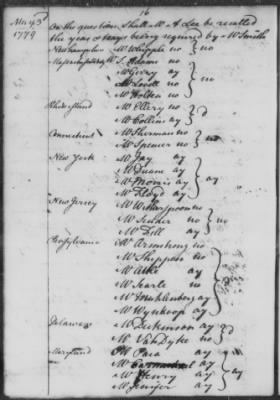 16
May 3d
1779
On the question, Shall Mr A Lee be recalled
the yeas & nays being required by Mr Smith
Newhampshire Mr Whipple no } no
Massachusetts bay Mr S. Adams no
Mr Gerry ay
Mr Lovell no } no
Mr Holten no
Rhode Island Mr Ellery no
Mr Collins ay } d
Connecticut Mr Sherman no
Mr Spencer no } no
New York Mr Jay ay
Mr Duane ay
Mr Morris ay } ay
Mr Floyd ay
New Jersey Mr Witherspoon no
Mr Scudder no } no
Mr Fell ay
Pensylvania Mr Armstrong no
Mr Shippen no
Mr Atlee ay
Mr Searle no
Mr Muhlenberg ay
Mr Wynkoop ay
Delaware Mr Dickinson ay
Mr V. Dyke no } d
Maryland Mr Paca ay
Mr Carmichael ay
Mr Henry ay } ay
Mr Jenifer ay